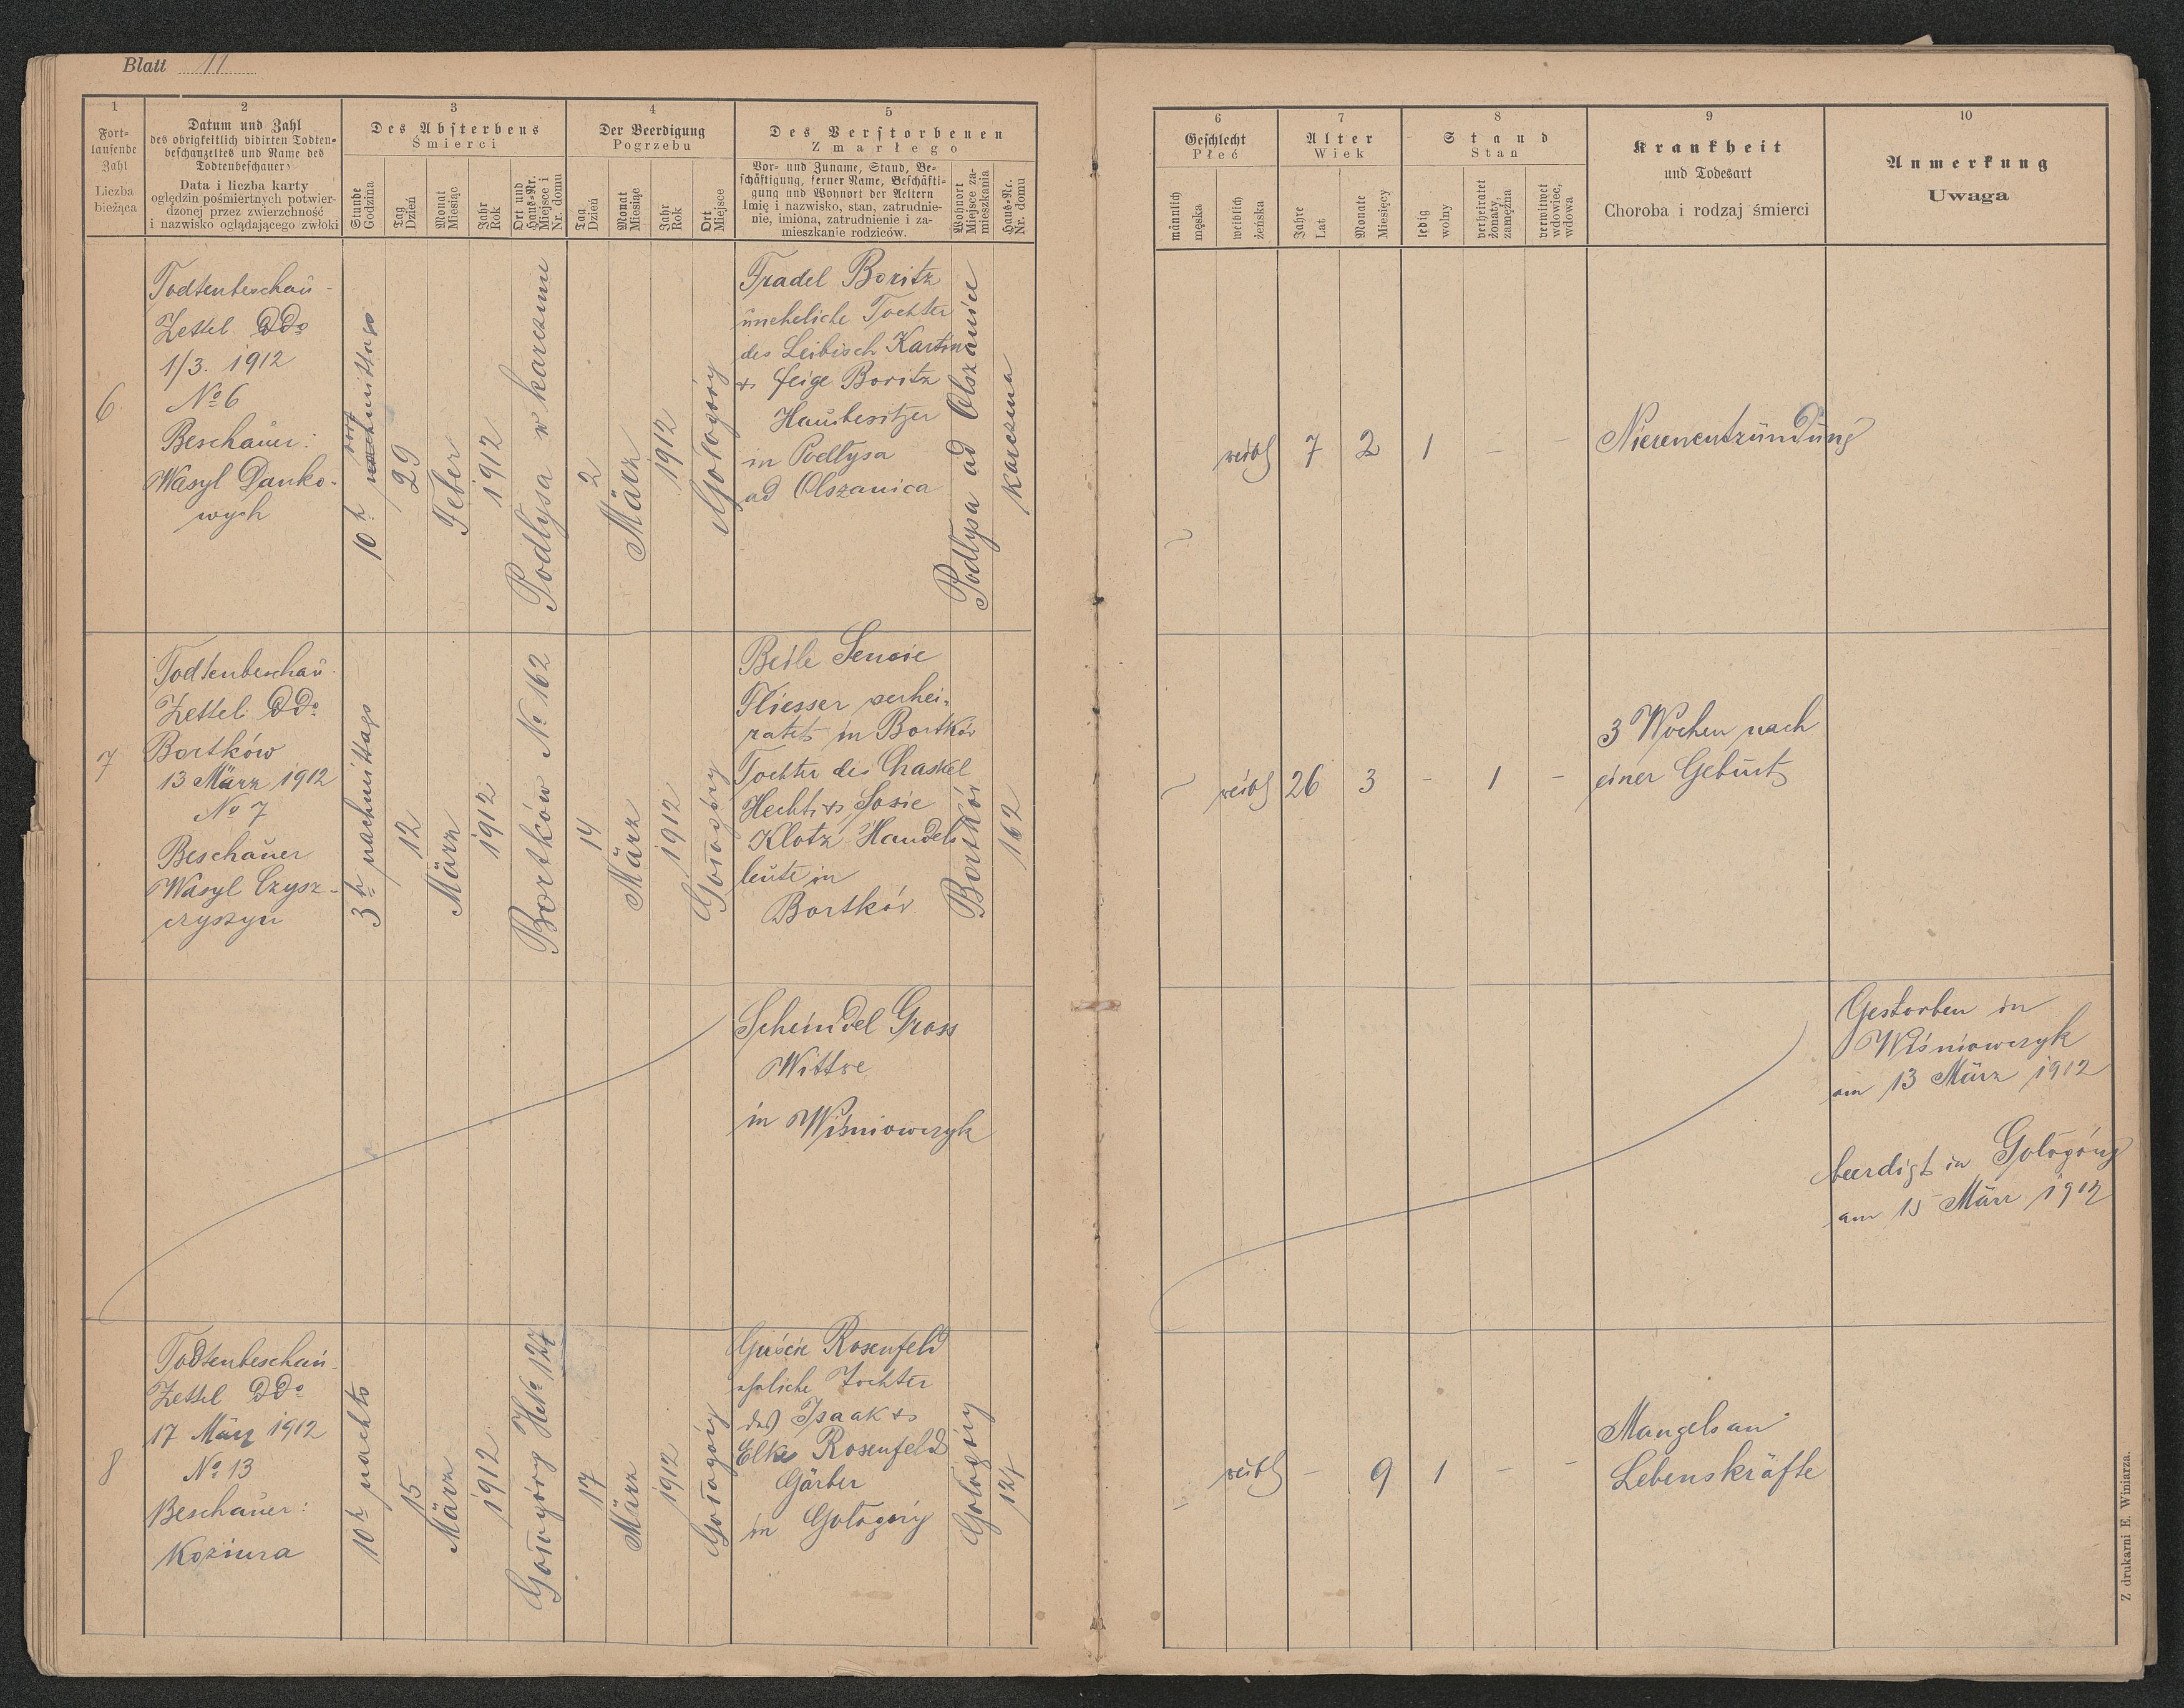 Blatt 11
1
Fort-
laufende
Zahl
Liczba
bieżąca
2
Datum und Zahl
des obrigkeitlich vidirten Todten-
beschauzeltes und Name des
Todtenbeschauers
Data i liczba karty
oględzin pośmiertnych potwier-
dzonej przez zwierzchność
i nazwisko oglądającego zwłoki
3
Des Absterbens
Śmierci
Stunde
Godzina
Tag
Dzień
Monat
Miesiąc
Jahr
Rok
Ort und
Haus-Nr.
Miejsce i
Nr. domu
4
Der Beerdigung
Pogrzebu
Tag
Dzień
Monat
Miesiąc
Jahr
Rok
Ort
Miejsce
5
Des Verstorbenen
Zmarłego
Vor- und Zuname, Stand, Be-
schäftigung, ferner Name, Beschäfti-
gung und Wohnort der Aeltern
Imię i nazwisko, stan, zatrudnie-
nie, imiona, zatrudnienie i za-
mieszkanie rodziców.
Wohnort
Miejsce za-
mieszkania
Haus-Nr.
Nr. domu
6
Geschlecht
Płeć
männlich
męska
weiblich
żeńska
7
Alter
Wiek
Jahre
Lat
Monate
Miesięcy
8
Stand
Stan
ledig
wolny
verheiratet
żonaty,
zamężna
verwitwet
wdowiec,
wdowa
9
Krankheit
und Todesart
Choroba i rodzaj śmierci
10
Anmerkung
Uwaga
6
Todtenbeschau-
Zettel ddo
1/3. 1912
No 6
Beschauer:
Wasyl Danko-
wych
10 h vormittags
29
Feber
1912
Podłysa w karczmie
2
März
1912
Gołogóry
Fradel Boritz
uneheliche Tochter
des Leibisch
& Feige Boritz
Hausbesitzer
in Podłysa
ad Olszanica
Podłysa ad Olszanice
karczma
weibl
7
2
1
–
–
Nierenentzündung
7
Todtenbeschau-
Zettel ddo
Bortków
13 März 1912
No 7
Beschauer
Wasyl Czysz-
czyszyn
3 h nachmittags
12
März
1912
Bortków No 162
14
März
1912
Gołogóry
Beile
Fliesser verhei-
ratet in Bortków
Tochter des Chaskel
Hecht & Sosie
Klotz Handels
leute in
Bortków
Bortków
162
weibl
26
3
–
1
–
3 Wochen nach
einer Geburt
Scheindel Gross
Witwe
in Wiśniowczyk
Gestorben in
Wiśniowczyk
am 13 März 1912
beerdigt in Gołogóry
am 15 März 1912
8
Todtenbeschau-
Zettel ddo
17 März 1912
No 13
Beschauer:
Koziura
10 h nachts
15
März
1912
Gołogóry
17
März
1912
Gołogóry
Rosenfeld
eheliche Tochter
des Isaak &
Elke Rosenfeld
Gärber
in Gołogóry
Gołogóry
124
weibl
–
9
1
–
–
Mangels an
Lebenskräfte
Z drukarni E. Winiarza.